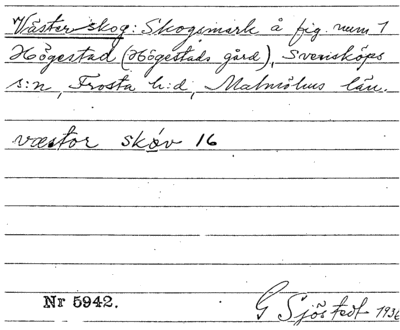 "/ Västerskog: Skogsmark å fig. num 1
Högestad (Högestads gård), Svensköps
s:n, Frosta h:d, Malmöhus län.
væstor skóv 16
Nr 5942.
G Sjöstedt 1936